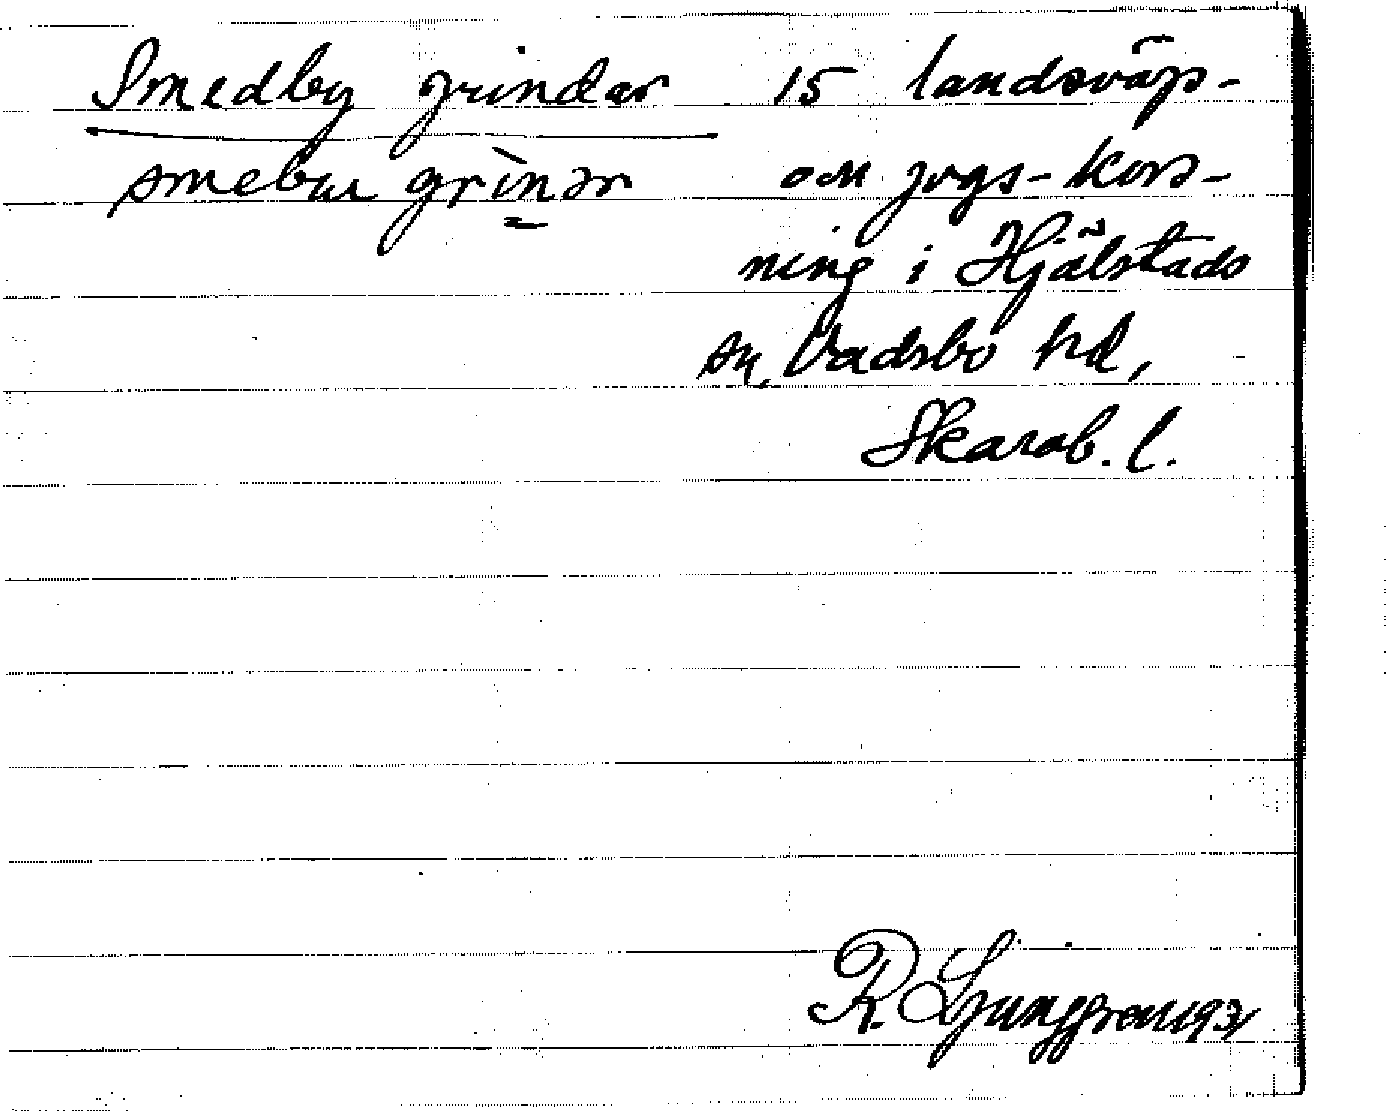 Smedby grindar 15 landsvägs-
smebu grìnər och jvgs-kors-
ning i Hjälstads
sn, Vadsbo hd,
Skarab. l.
R. Ljunggren 1931